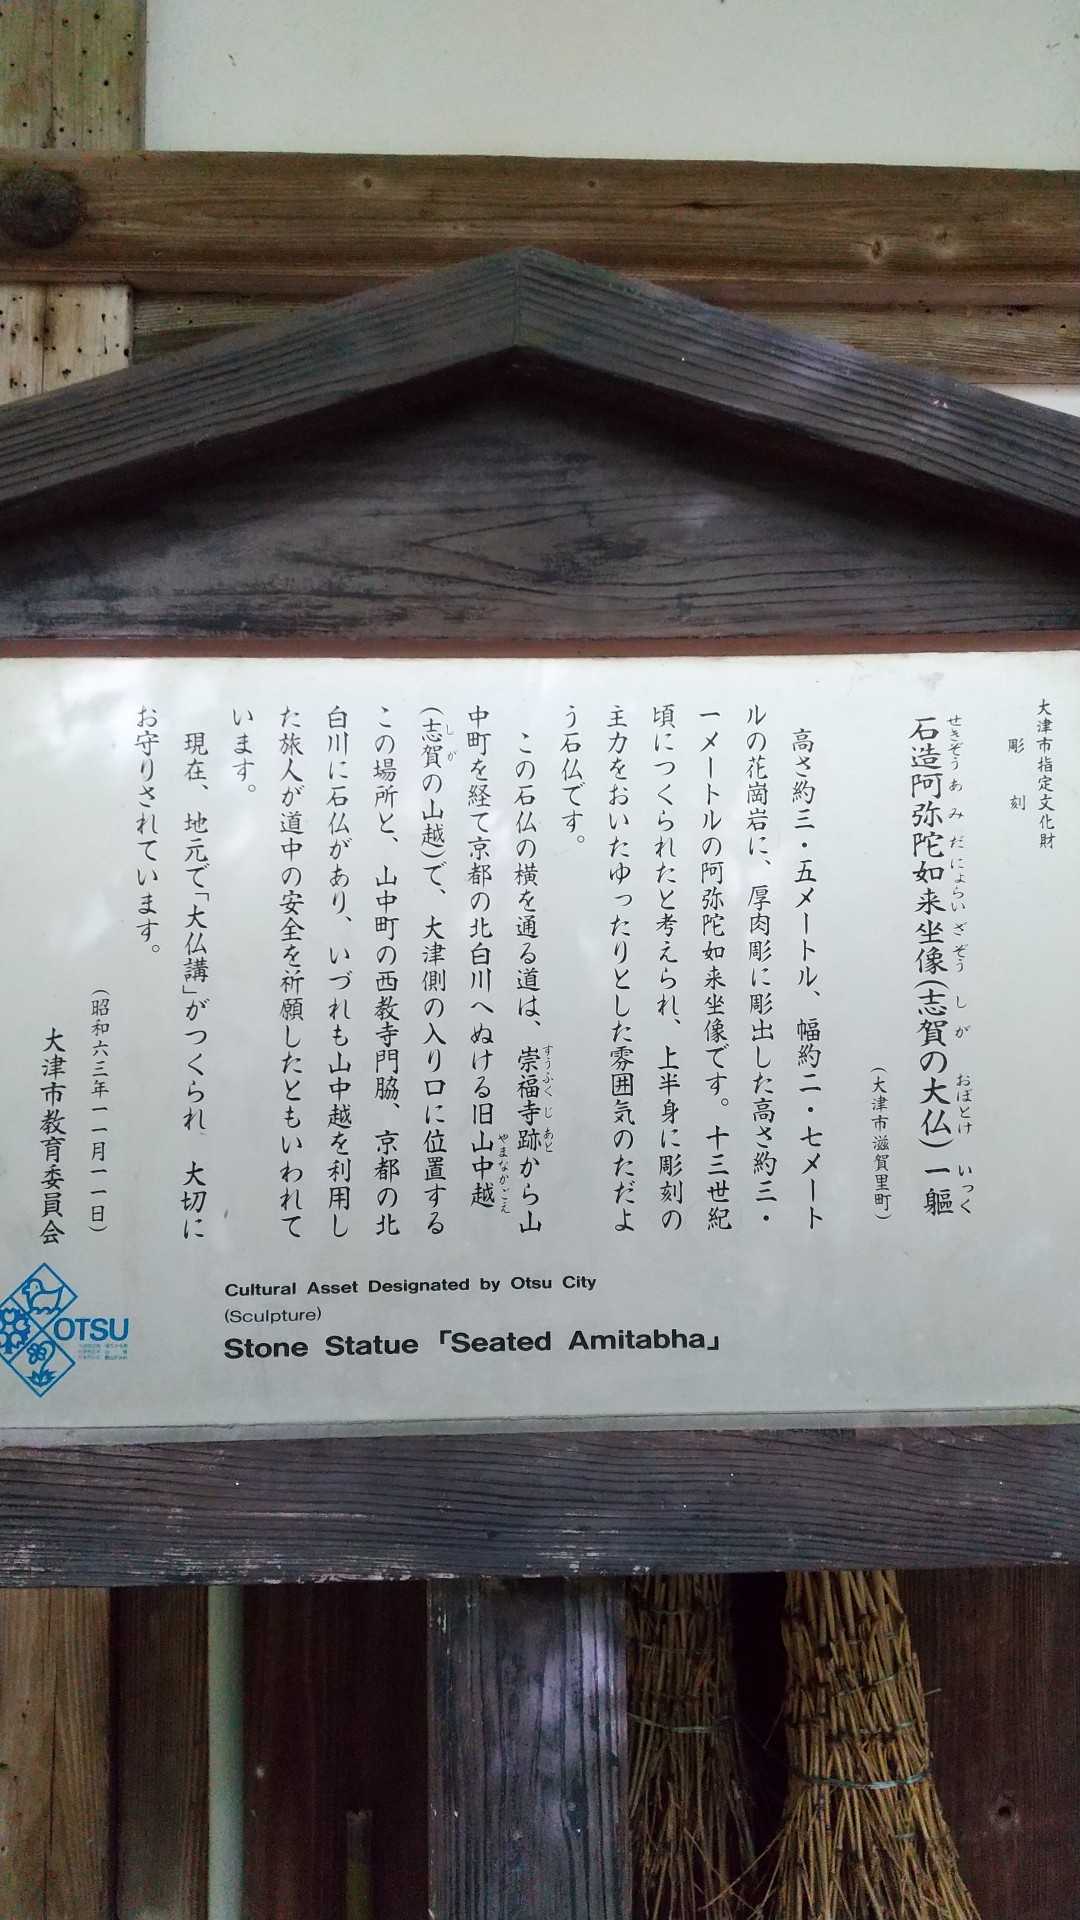 大津市指定文化財
彫刻
石造阿弥陀如来坐像(志賀の大仏)一軀
せきぞうあみだにょらいざぞう しが おぼとけ いっく
(大津市滋賀里町)
高さ約三・五メートル、幅約二・七メート
ルの花崗岩に、厚肉彫に彫出した高さ約三・
一メートルの阿弥陀如来坐像です。十三世紀
頃につくられたと考えられ、上半身に彫刻の
主力をおいたゆったりとした雰囲気のただよ
う石仏です。
この石仏の横を通る道は、崇福寺跡から山
すうふくじあと
中町を経て京都の北白川へぬける旧山中越
やまなかごえ
(志賀の山越)で、大津側の入り口に位置する
しが
この場所と、山中町の西教寺門脇、京都の北
白川に石仏があり、いづれも山中越を利用し
た旅人が道中の安全を祈願したともいわれて
います。
現在、地元で「大仏講」がつくられ 大切に
お守りされています。
(昭和六三年一一月一一日)
大津市教育委員会
Cultural Asset Designated by Otsu City
(Sculpture)
Stone Statue「Seated Amitabha」
OTSU